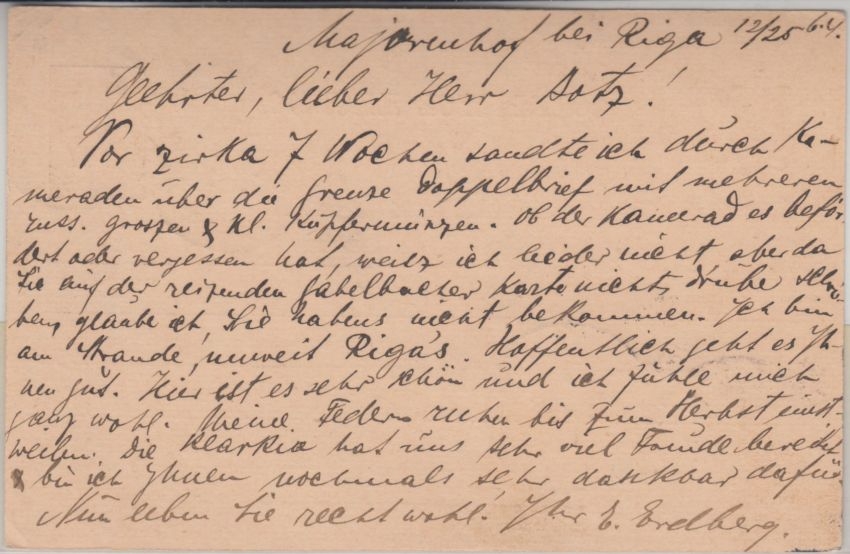 Majorenhof bei Riga 12/25 6.4.
Geehrter, lieber Herr Dotz!
Vor zirka 7 Wochen sandte ich durch Ka-
meraden über die Grenze Doppelbrief mit mehreren
russ. groszen & kl. Kupfermünzen. Ob der Kamerad es beför-
dert oder vergessen hat, weisz ich leider nicht, aber da
Sie auf der reizenden Gabelbacher Karte nichts drübe schrie-
ben, glaube ich, Sie habens nicht bekommen. Ich bin
am Strande, unweit Riga's. Hoffentlich geht es Ih-
nen gut. Hier ist es sehr schön und ich fühle mich
ganz wohl. Meine Federn ruhen bis zum Herbst einst-
weilen. Die Klarkia hat uns sehr viel Freude bereitet
& bin ich Ihnen nochmals sehr dankbar dafür.
Nun leben Sie recht wohl! Ihr E. Erdberg.